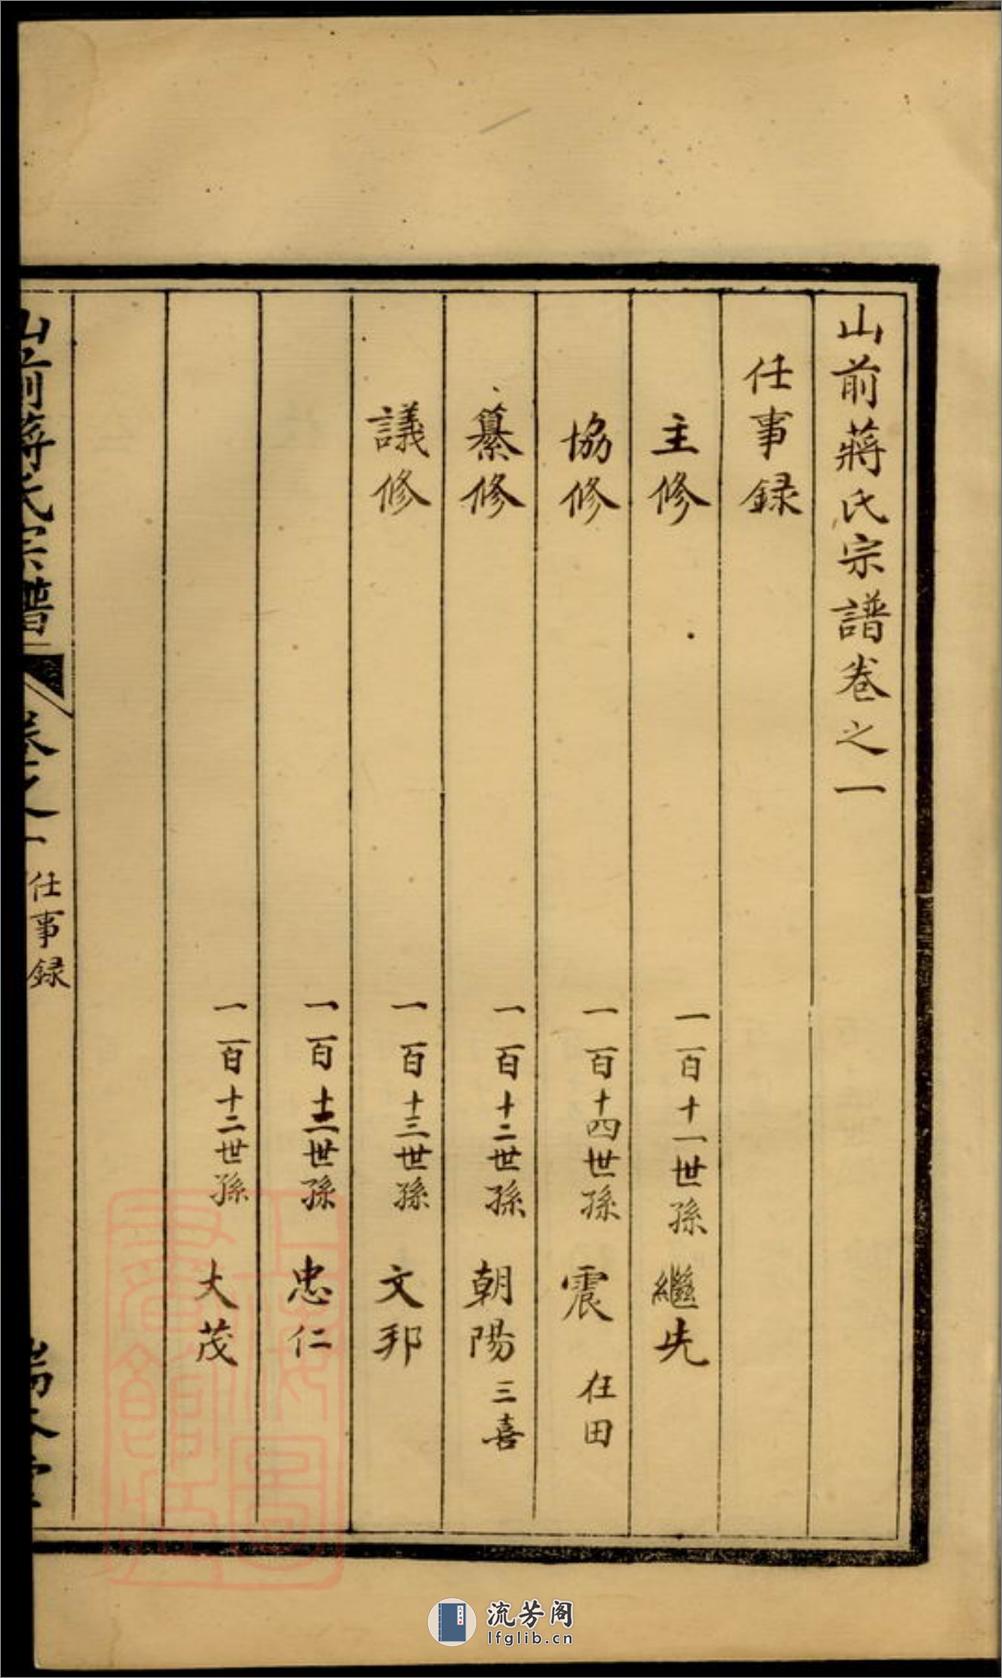 山前蔣氏宗譜卷之一
任事録
主修 一百十一世孫 繼先
協修 一百十四世孫 震 在田
纂修 一百十二世孫 朝陽 三喜
議修 一百十三世孫 文邦
一百十二世孫 忠仁
一百十二世孫 大茂
山前蔣氏宗譜 卷之一 任事録
流芳阁
lfglib.cn